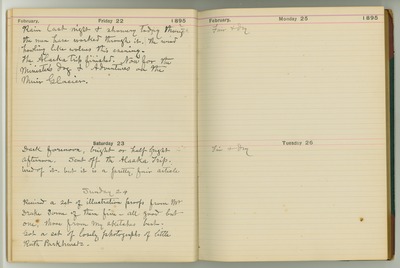 February. Friday 22 1895
Rain last night & showery today though
the men have worked through it. The wind
howling like wolves this evening.
The Alaska trip finished. Now for the
Minister's Dog & Adventures on the
Muir Glacier.
Saturday 23
Dark forenoon, bright or half bright
afternoon. Sent off the Alaska Trip.
tired of it but it is a pretty fair article
Sunday 24
Received a set of illustration proofs from
Drake. Some of them fine – all good but
one, those from my sketches best.
Got a set of lovely photographs of little
Ruth
February. Monday 25 1895
Fair & Dry
Tuesday 26
Fair & Dry